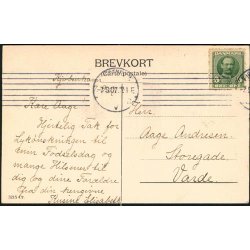 BREVKORT
(Carte postale)
København
Kære Aage
Hjertelig Tak for
Lykønskningen til
min Fødselsdag og
mange Hilsner til
dig og dine Forældre
fra din hengivne
Elisabeth
Herr.
Aage Andresen
Storegade
Varde